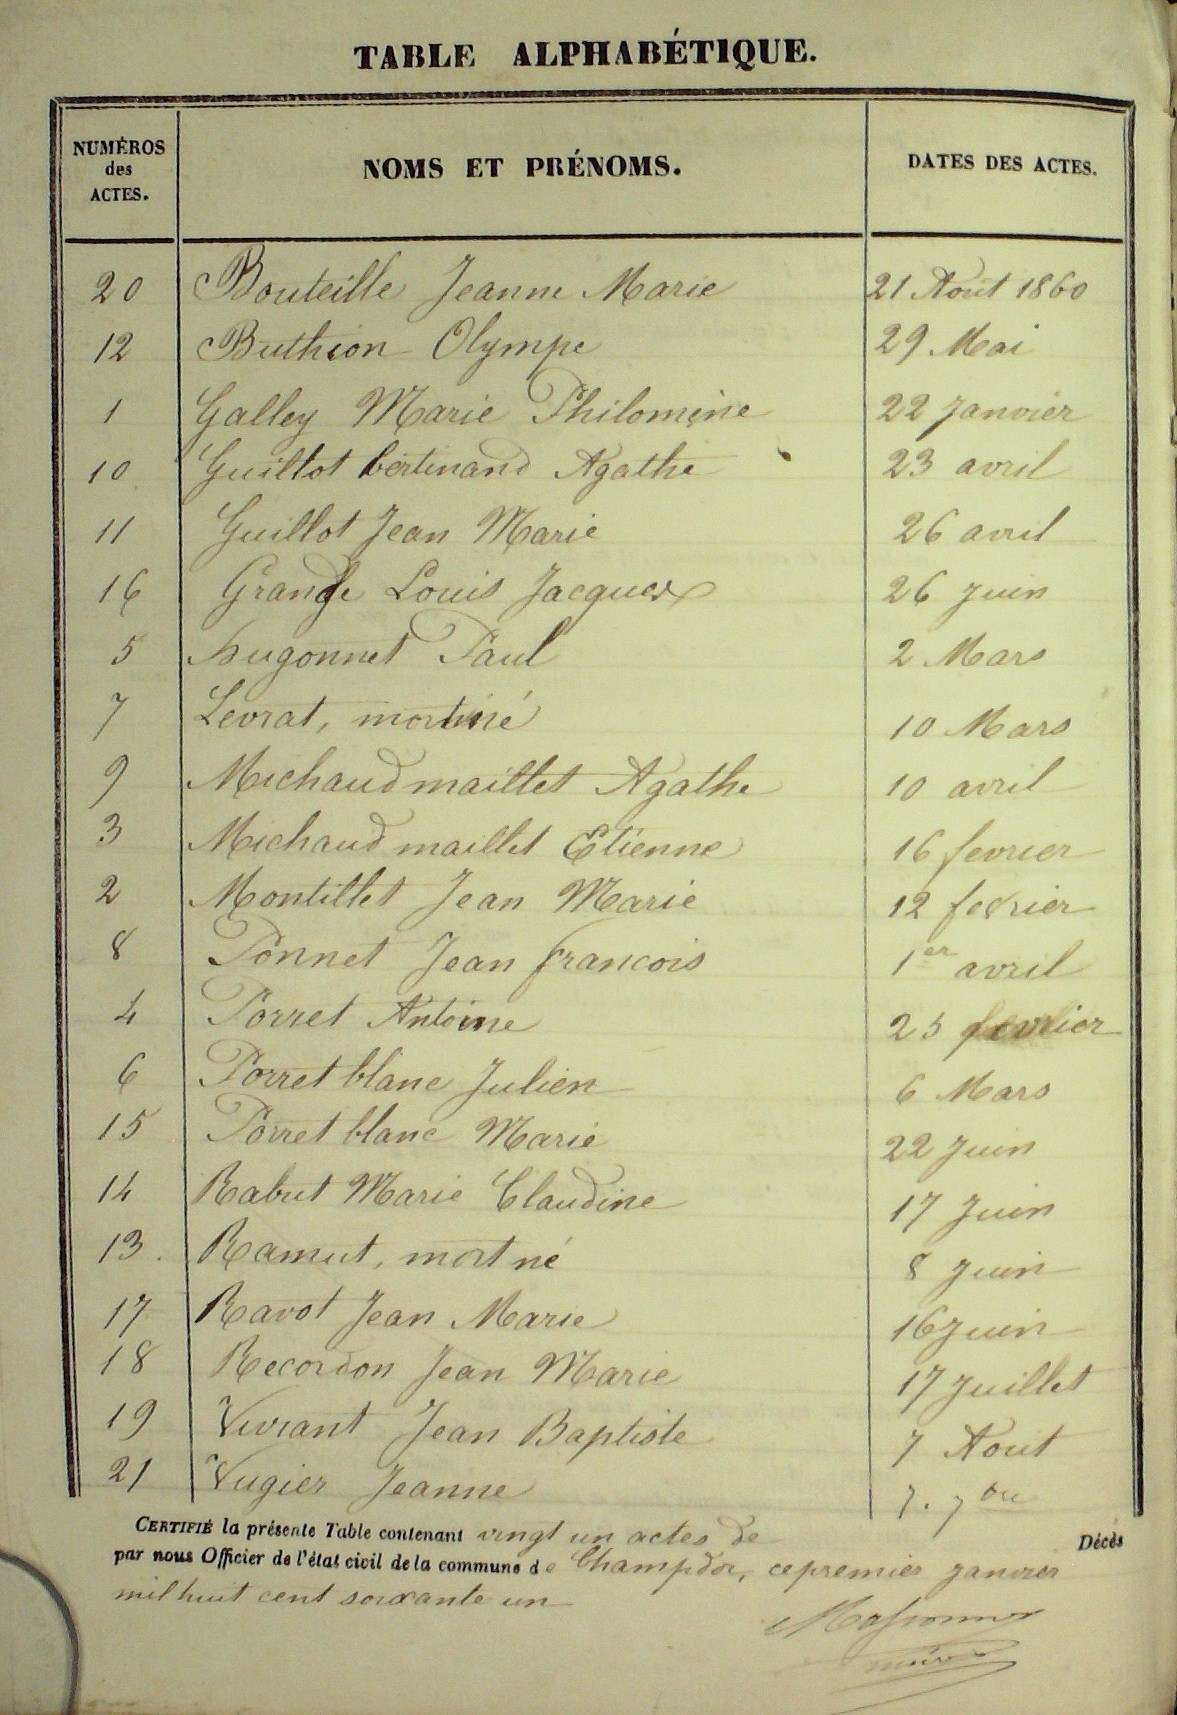 TABLE ALPHABÉTIQUE.
NUMÉROS des ACTES. NOMS ET PRÉNOMS. DATES DES ACTES.
20 Bouteille Jeanne Marie 21 Aout 1860
12 Buthion Olympe 29 Mai
1 Galley Marie Philomène 22 Janvier
10 Guillot bertinand Agathe 23 avril
11 Guillot Jean Marie 26 avril
16 Grange Louis Jacques 26 Juin
5 hugonnet Paul 2 Mars
7 Levrat, mortné 10 Mars
9 Michaud maillet Agathe 10 avril
3 Michaud maillet Etienne 16 fevrier
2 Montillet Jean Marie 12 fevrier
8 Ponnet Jean francois 1er avril
4 Porret Antoine 25 fevrier
6 Porret blanc Julien 6 Mars
15 Porret blanc Marie 22 Juin
14 Rabut Marie Claudine 17 Juin
13. Ramut, mort né 8 Juin
17 Ravot Jean Marie 16 Juin
18 Recordon Jean Marie 17 Juillet
19 Vivrant Jean Baptiste 7 Aout
21 Vugier Jeanne 7. 7bre
CERTIFIÉ la présente Table contenant vingt un actes de Décès
par nous Officier de l'état civil de la commune de Champdor, ce premier janvier
mil huit cent soixante un